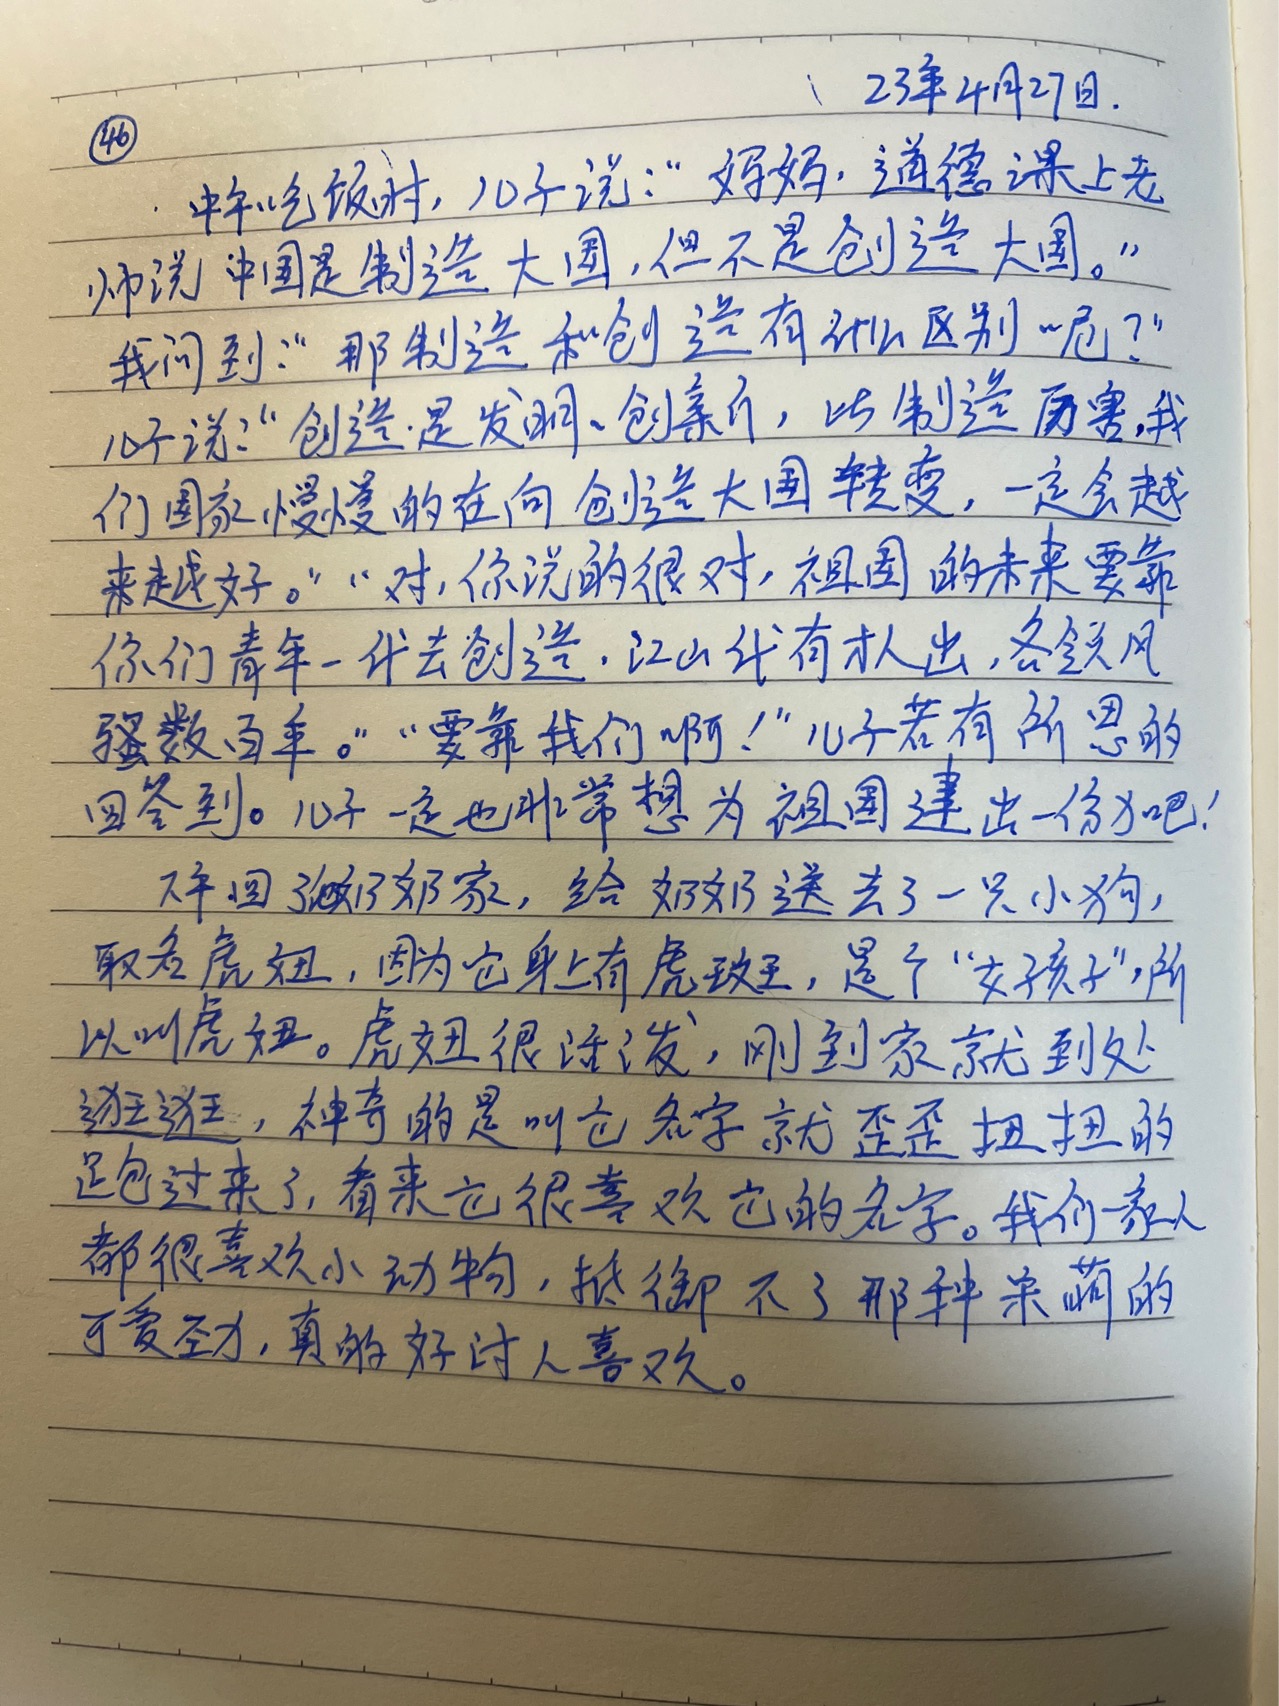 23年4月27日.
46
中午吃饭时,儿子说:“妈妈.道德课上老
师说中国是制造大国,但不是创造大国。”
我问到:“那制造和创造有什么区别呢?”
儿子说:“创造是发明、创新,比制造厉害,我
们国家慢慢的在向创造大国转变,一定会越
来越好。”“对,你说的很对,祖国的未来要靠
你们青年一代去创造.江山代有才人出,各领风
骚数百年。”“要靠我们啊!”儿子若有所思的
回答到。儿子一定也非常想为祖国建出一份力吧!
下午回了奶奶家,给奶奶送去了一只小狗,
取名虎妞,因为它身上有虎斑,是个“女孩子”,所
以叫虎妞。虎妞很活泼,刚到家就到处
逛逛,神奇的是叫它名字就歪歪扭扭的
跑过来了,看来它很喜欢它的名字。我们一家人
都很喜欢小动物,抵御不了那种呆萌的
可爱劲,真的好讨人喜欢。